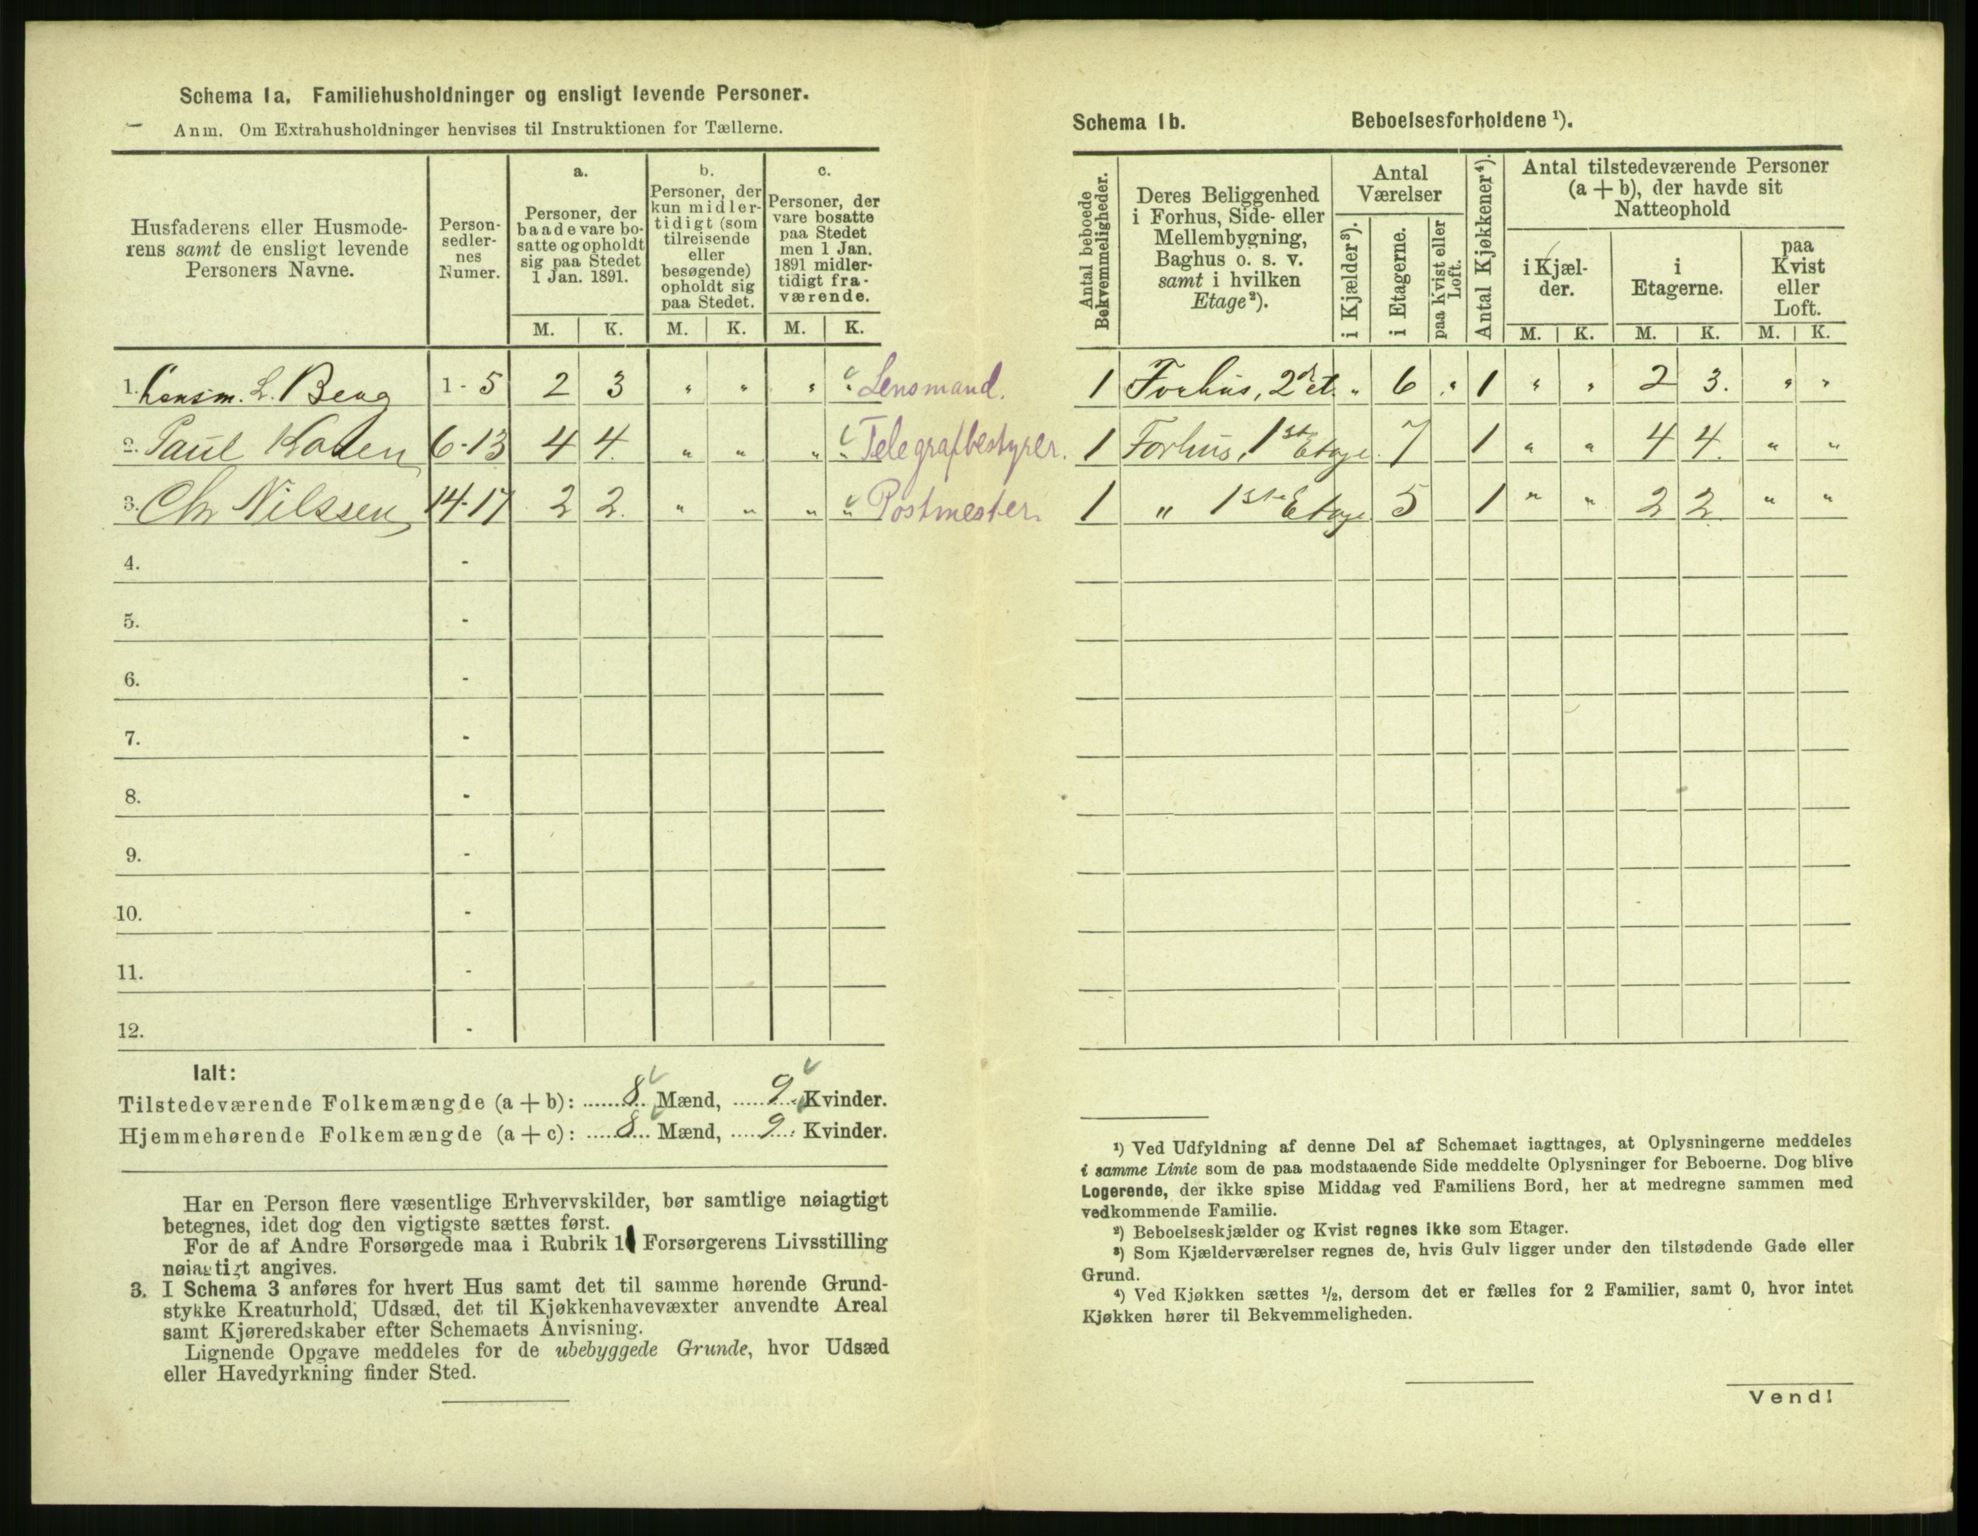 Schema 1a. Familiehusholdninger og ensligt levende Personer.
Anm. Om Extrahusholdninger henvises til Instruktionen for Tællerne.
Husfaderens eller Husmoderens samt de ensligt levende Personers Navne.
Person-sedler-nes Numer.
a. Personer, der baade vare bosatte og opholdt sig paa Stedet 1 Jan. 1891.
b. Personer, der kun midlertidigt (som tilreisende eller besøgende) opholdt sig paa Stedet.
c. Personer, der vare bosatte paa Stedet men 1 Jan. 1891 midlertidigt fraværende.
M. K. M. K. M. K.
1. Lensm. L. Berg 1-5 2 3 " " " " Lensmand.
2. Paul 6-13 4 4. " " " " Telegrafbestyrer.
3. Chr Nilssen 14-17 2 2. " " " " Postmester.
4. -
5. -
6. -
7. -
8. -
9. -
10. -
11. -
12. -
Ialt:
Tilstedeværende Folkemængde (a + b): 8 Mænd, 9 Kvinder.
Hjemmehørende Folkemængde (a + c): 8 Mænd, 9 Kvinder.
Har en Person flere væsentlige Erhvervskilder, bør samtlige nøiagtigt
betegnes, idet dog den vigtigste sættes først.
For de af Andre Forsørgede maa i Rubrik 1 Forsørgerens Livsstilling
nøiagtigt angives.
3. I Schema 3 anføres for hvert Hus samt det til samme hørende Grund-
stykke Kreaturhold, Udsæd, det til Kjøkkenhavevæxter anvendte Areal
samt Kjøreredskaber efter Schemaets Anvisning.
Lignende Opgave meddeles for de ubebyggede Grunde, hvor Udsæd
eller Havedyrkning finder Sted.
Schema 1b. Beboelsesforholdene ¹).
Antal beboede Bekvemmeligheder.
Deres Beliggenhed i Forhus, Side- eller Mellembygning, Baghus o. s. v. samt i hvilken Etage²).
Antal Værelser
i Kjælder³).
i Etagerne.
paa Kvist eller Loft.
Antal Kjøkkener⁴).
Antal tilstedeværende Personer (a + b), der havde sit Natteophold
i Kjæl-der.
i Etagerne.
paa Kvist eller Loft.
M. K. M. K. M. K.
1 Forhus, 2det. " 6 " 1 " " 2 3. " "
1 Forhus, 1st Etage. 7 1 " " 4 4. " "
1 " 1ste Etage 5 1 " " 2 2 " "
¹) Ved Udfyldning af denne Del af Schemaet iagttages, at Oplysningerne meddeles
i samme Linie som de paa modstaaende Side meddelte Oplysninger for Beboerne. Dog blive
Logerende, der ikke spise Middag ved Familiens Bord, her at medregne sammen med
vedkommende Familie.
²) Beboelseskjælder og Kvist regnes ikke som Etager.
³) Som Kjælderværelser regnes de, hvis Gulv ligger under den tilstødende Gade eller
Grund.
⁴) Ved Kjøkken sættes ½, dersom det er fælles for 2 Familier, samt 0, hvor intet
Kjøkken hører til Bekvemmeligheden.
Vend!